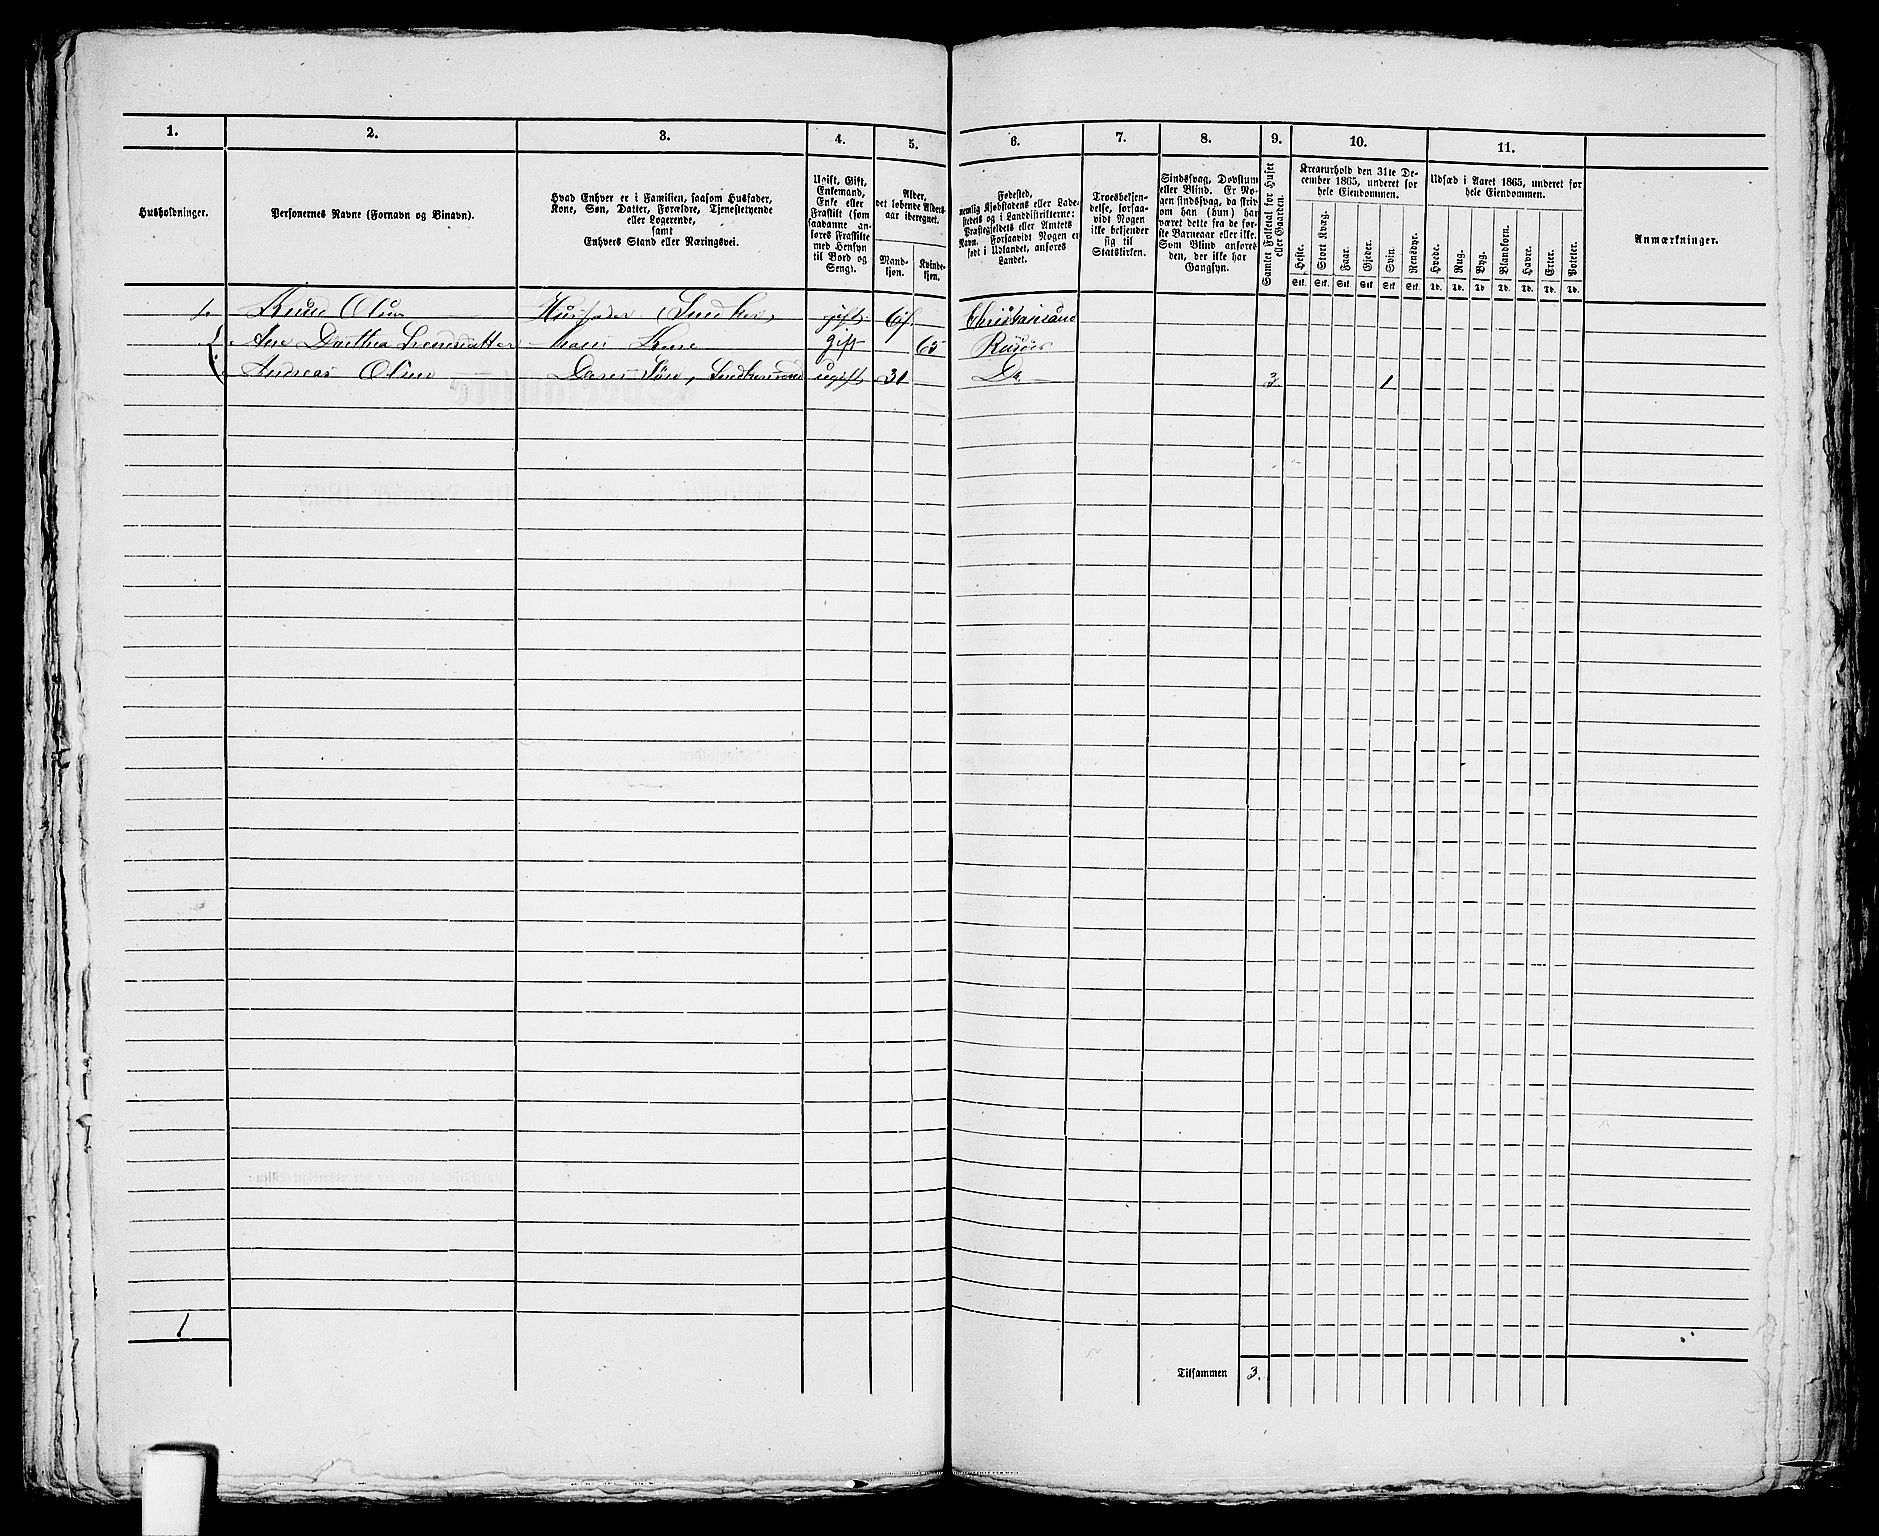 1.
2.
3.
4.
5.
6.
7.
8.
9.
10.
11.
Husholdninger.
Personernes Navne (Fornavn og Binavn).
Hvad Enhver er i Familien, saasom Husfader,
Kone, Søn, Datter, Forældre, Tjenestetyende
eller Logerende,
samt
Enhvers Stand eller Næringsvei.
Ugift, Gift,
Enkemand,
Enke eller
Fraskilt (som
saadanne an-
føres Fraskilte
med Hensyn
til Bord og
Seng).
Alder,
det løbende Alders-
aar iberegnet.
Mand-
kjøn.
Kvinde-
kjøn.
Fødested,
nemlig Kjøbstadens eller Lade-
stedets og i Landdistrikterne:
Præstegjeldets eller Amtets
Navn. Forsaavidt Nogen er
født i Udlandet, anføres
Landet.
Troesbekjen-
delse, forsaa-
vidt Nogen
ikke bekjender
sig til
Statskirken.
Sindssvag, Døvstum
eller Blind. Er No-
gen sindssvag, da skriv
om han (hun) har
været dette fra de før-
ste Barneaar eller ikke.
Som Blind anføres
den, der ikke har
Gangsyn.
Samlet Folketal for Huset
eller Gaarden.
Kreaturhold den 31te De-
cember 1865, underet for
hele Eiendommen.
Heste.
Stort Kvæg.
Faar.
Gjeder.
Svin.
Rensdyr.
Stk.
Stk.
Stk.
Stk.
Stk.
Stk.
Udsæd i Aaret 1865, underet for
hele Eiendommen.
Hvede.
Rug.
Byg.
Blandkorn.
Havre.
Erter.
Poteter.
Td.
Td.
Td.
Td.
Td.
Td.
Td.
Anmærkninger.
1. Knud Olsen Husfader, Snedker, gift Christiansand
Ane Dorthea hans Kone gift 65 Risøer
Andreas Olsen Deres Søn, ugift 31 Do. 3 1
1
Tilsammen 3.